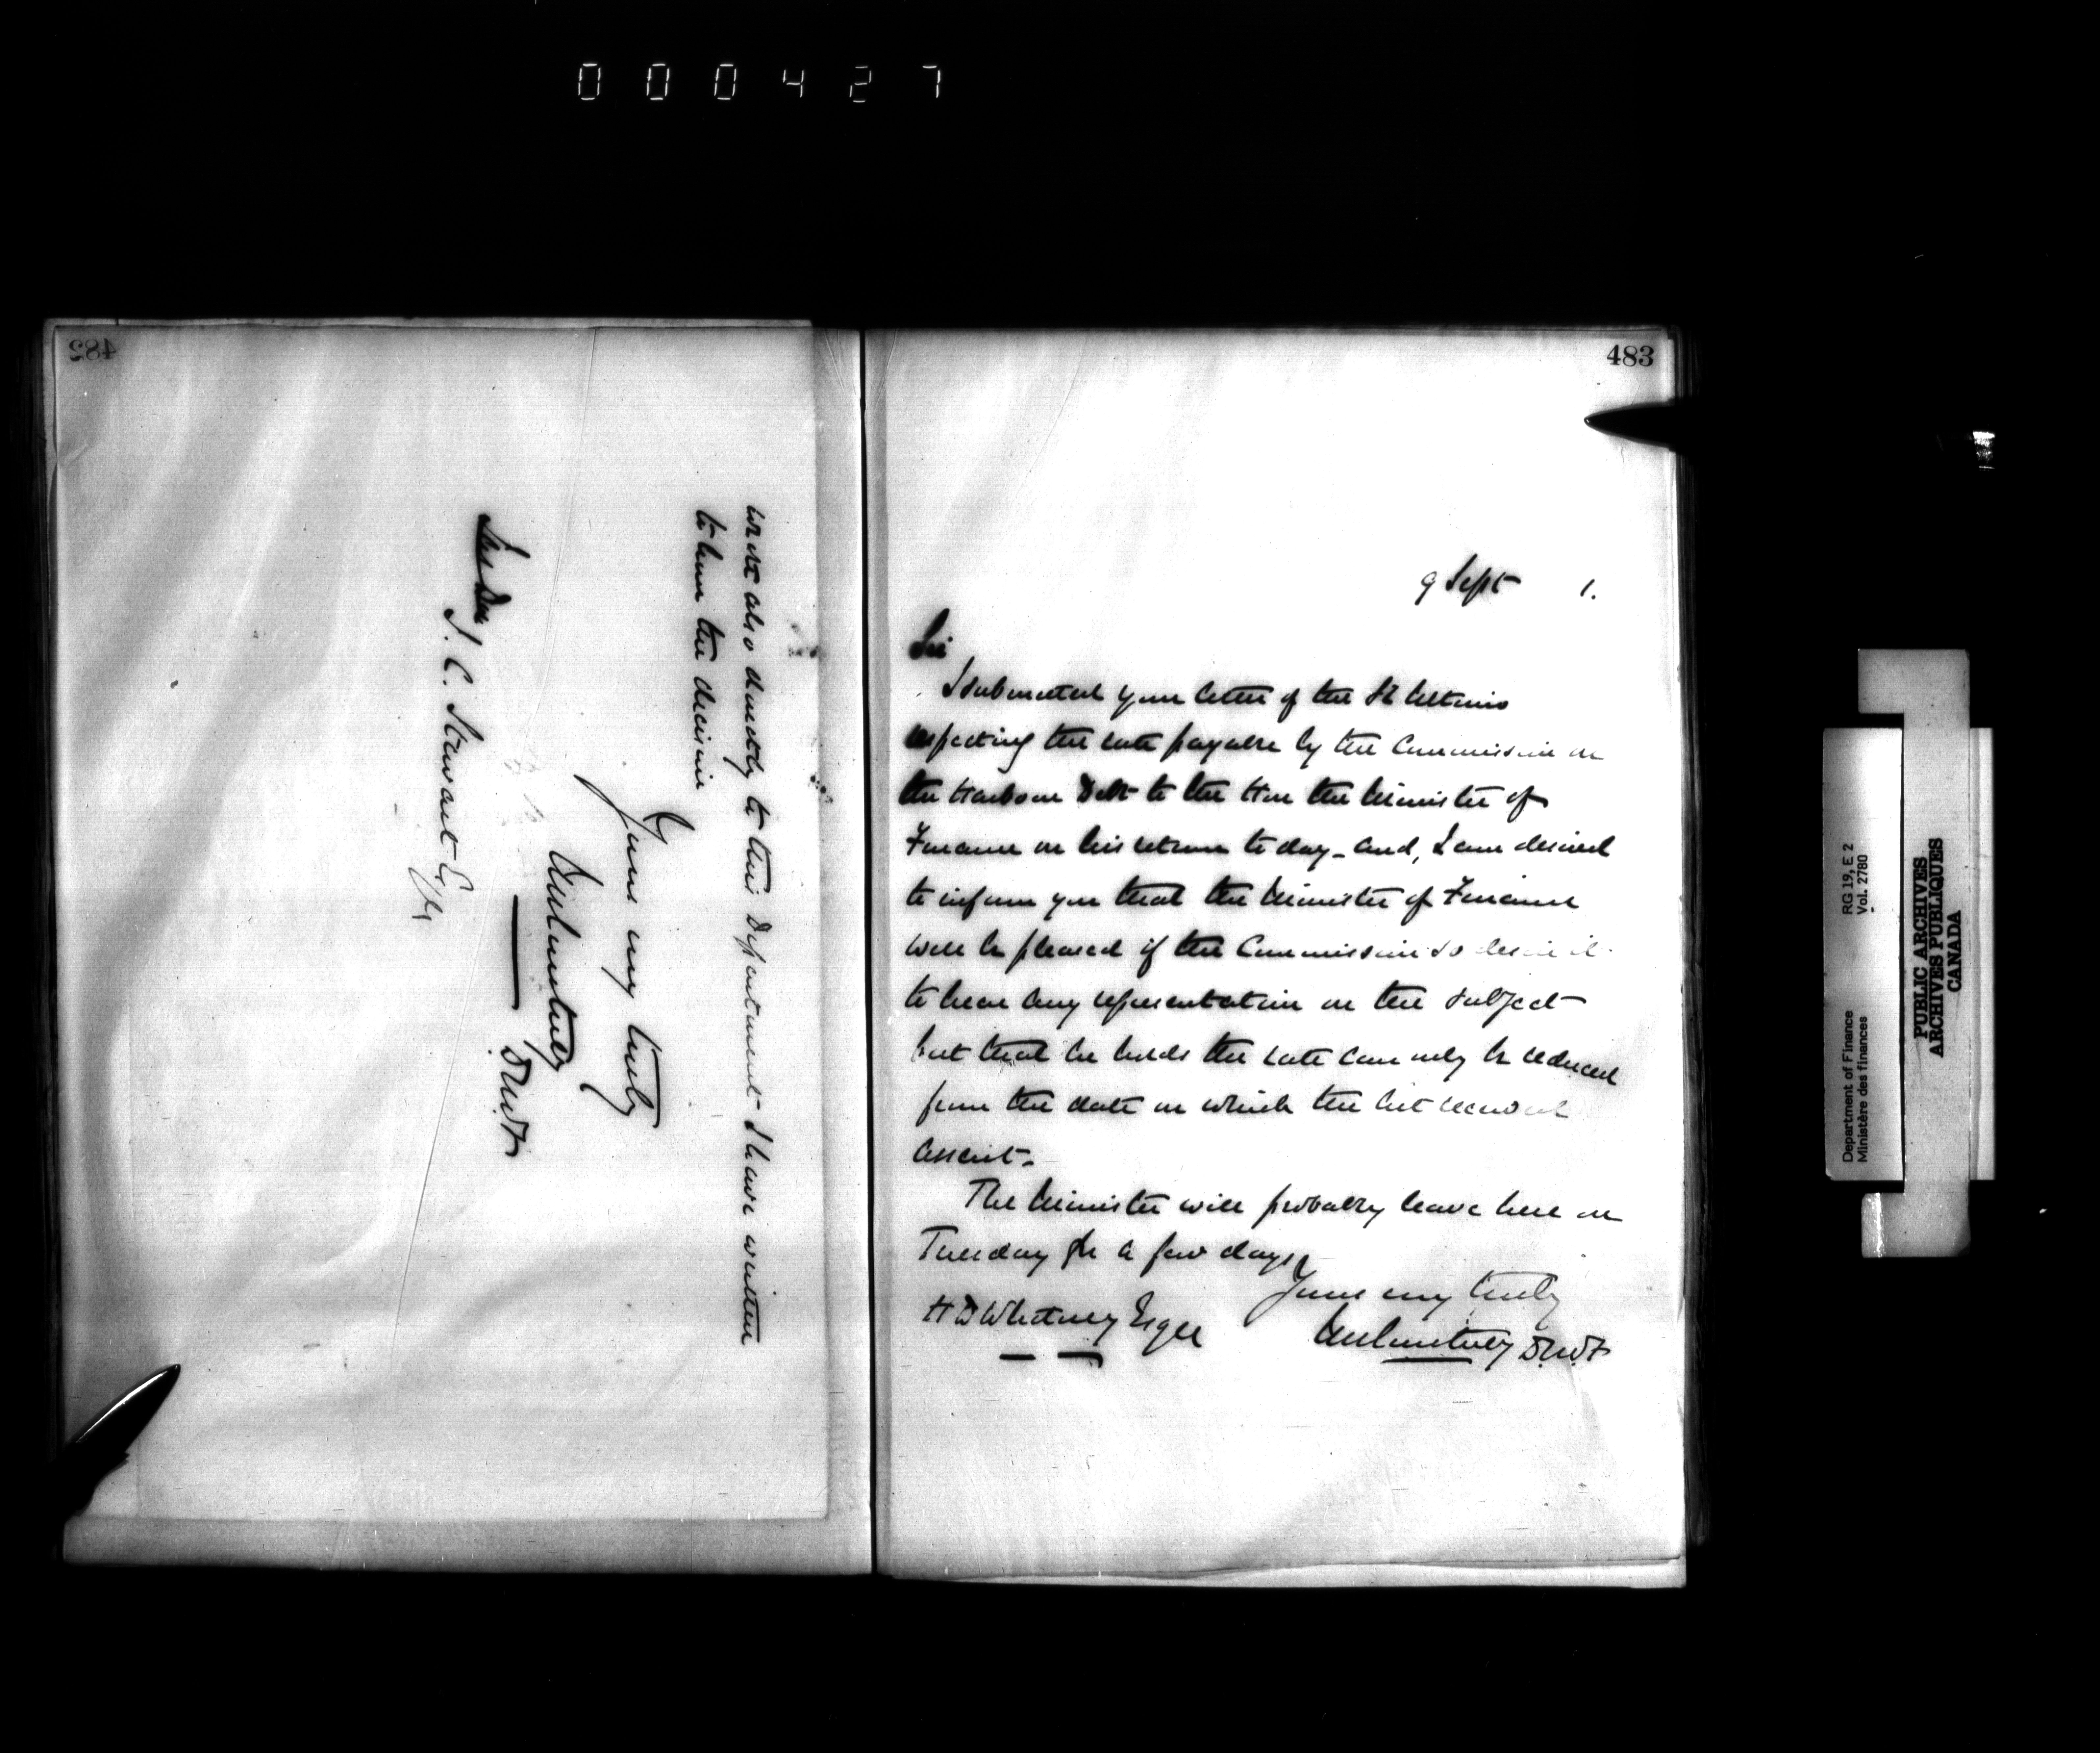 000427
482
wrote also directly to this Department I have written
to them the decision
Yours very truly
JMCourtney
DMF
J. C. Stewart Esq
483
9 Sept 1.
Sir
I submitted your letter of the Ultimo
respecting the rate payable by the Commission on
the Harbour Debt to the Hon the Minister of
Finance on his return to day - and, I am desired
to inform you that the Minister of Finance
will be pleased if the Commission so desire it
to hear any representation on the subject
but that he holds the rate can only be reduced
from the date on which the Act received
assent -
The Minister will probably leave here on
Tuesday for a few days
Yours very truly
H D Whitney Esqre
JMCourtney DMF
Department of Finance RG 19, E 2
Ministère des finances Vol. 2780
PUBLIC ARCHIVES
ARCHIVES PUBLIQUES
CANADA